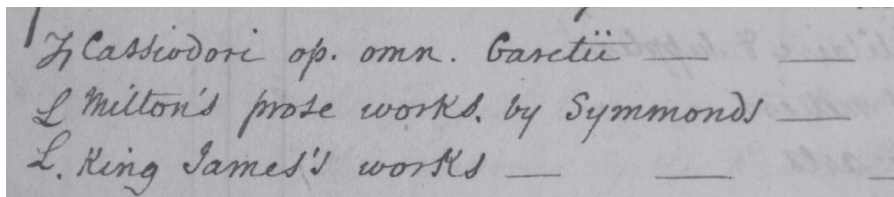 Cassiodori op. omn. Garetii —— ——
L Milton's prose works. by Symmonds ——
L. King James's works —— —— —